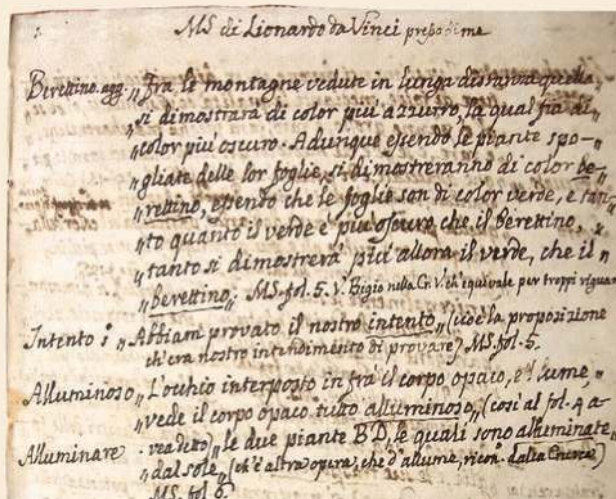 1. MS di Lionardo da Vinci presso di me
Berettino. agg. „Fra le montagne vedute in lunga distanza quella„
„si dimostrarà di color più azzurro, la qual fia di„
„color più oscuro. Adunque essendo le piante spo-„
„gliate delle lor foglie, si dimostreranno di color be-„
„rettino, essendo che le foglie son di color verde, e tan„
„to quanto il verde è più oscuro che il berettino, „
„tanto si dimostrerà più allora il verde, che il „
„berettino„ MS. fol. 5. V. Bigio nella Cr. V. ch'equivale per troppi riguar
Intento s „Abbiam provato il nostro intento„ (cioè la proposizione
ch'era nostro intendimento di provare) MS. fol. 5.
Alluminoso „L'occhio interposto infrà il corpo opaco, e 'l lume,„
„vede il corpo opaco tutto alluminoso„ (così al fol. 4 a-
Alluminare vea detto) „le due piante BD, le quali sono alluminate„
„dal sole„ (ch'è altra opera, che d'allume, ricon. dalla Crusca)
MS. fol. 6.